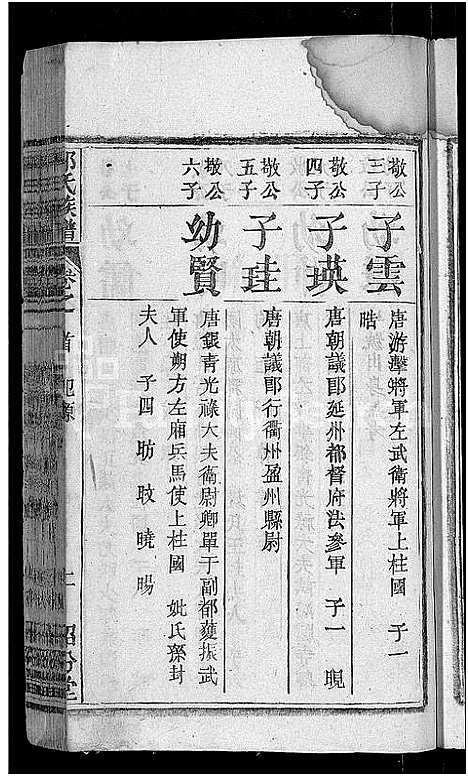 敬公三子
子雲
唐游擊將軍左武衛將軍上柱國 子一
晧
敬公四子
子瑛
唐朝議郎延州都督府法參軍 子一 晛
敬公五子
子珪
唐朝議郎行衢州盈州縣尉
敬公六子
幼賢
唐銀青光祿大夫衛尉卿單于副都䕶振武
軍使朔方左廂兵馬使上柱國 妣氏孫封
夫人 子四 昉 䏢 曉 晹
氏族譜 卷之 首